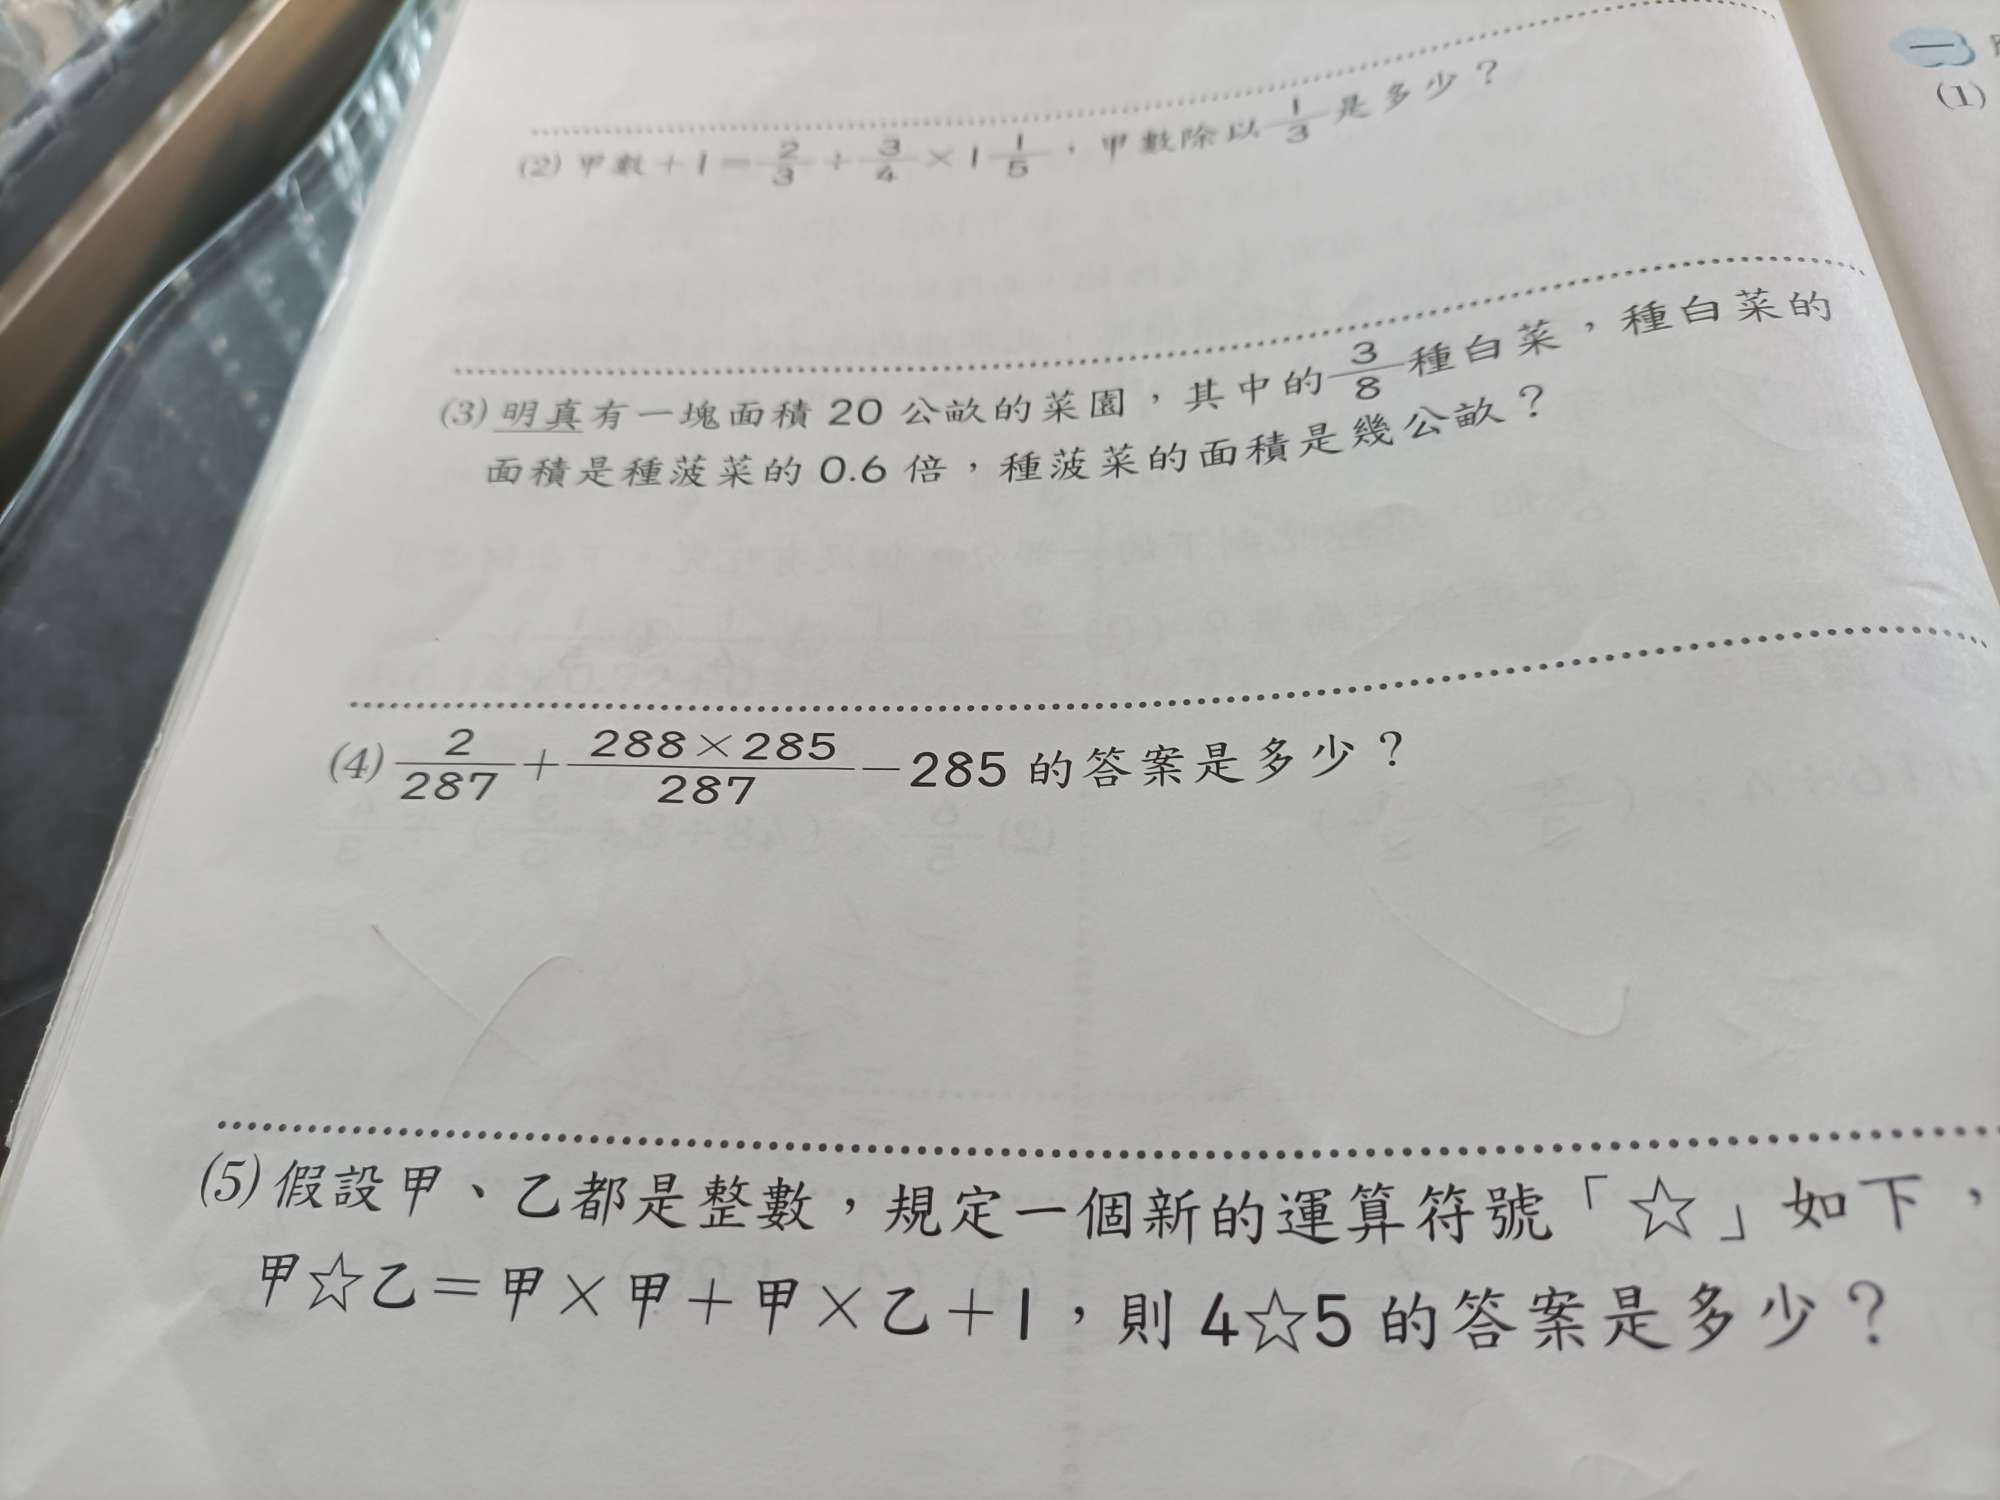 (2) 甲數＋1＝2/3÷3/4×1 1/5，甲數除以1/3是多少？
(3) 明真有一塊面積 20 公畝的菜園，其中的3/8種白菜，種白菜的
面積是種菠菜的 0.6 倍，種菠菜的面積是幾公畝？
(4) 2/287＋288×285/287－285 的答案是多少？
(5) 假設甲、乙都是整數，規定一個新的運算符號「☆」如下，
甲☆乙＝甲×甲＋甲×乙＋1，則 4☆5 的答案是多少？
一
(1)